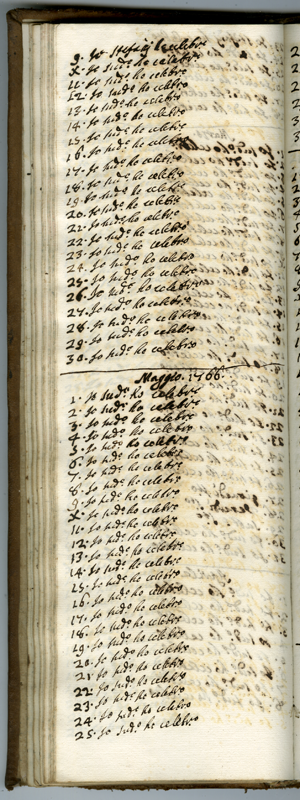 9. Io ho celebro
X. Io sud.º ho celebro
11. Io sud.º ho celebro
12. Io sud.º ho celebro
13. Io sud.º ho celebro
14. Io sud.º ho celebro
15. Io sud.º ho celebro
16. Io sud.º ho celebro
17. Io sud.º ho celebro
18. Io sud.º ho celebro
19. Io sud.º ho celebro
20. Io sud.º ho celebro
21. Io sud.º ho celebro
22. Io sud.º ho celebro
23. Io sud.º ho celebro
24. Io sud.º ho celebro
25. Io sud.º ho celebro
26. Io sud.º ho celebro
27. Io sud.º ho celebro
28. Io sud.º ho celebro
29. Io sud.º ho celebro
30. Io sud.º ho celebro
Maggio. 1766.
1. Io sud.º ho celebro
2. Io sud.º ho celebro
3. Io sud.º ho celebro
4. Io sud.º ho celebro
5. Io sud.º ho celebro
6. Io sud.º ho celebro
7. Io sud.º ho celebro
8. Io sud.º ho celebro
9. Io sud.º ho celebro
X. Io sud.º ho celebro
11. Io sud.º ho celebro
12. Io sud.º ho celebro
13. Io sud.º ho celebro
14. Io sud.º ho celebro
15. Io sud.º ho celebro
16. Io sud.º ho celebro
17. Io sud.º ho celebro
18. Io sud.º ho celebro
19. Io sud.º ho celebro
20. Io sud.º ho celebro
21. Io sud.º ho celebro
22. Io sud.º ho celebro
23. Io sud.º ho celebro
24. Io sud.º ho celebro
25. Io sud.º ho celebro